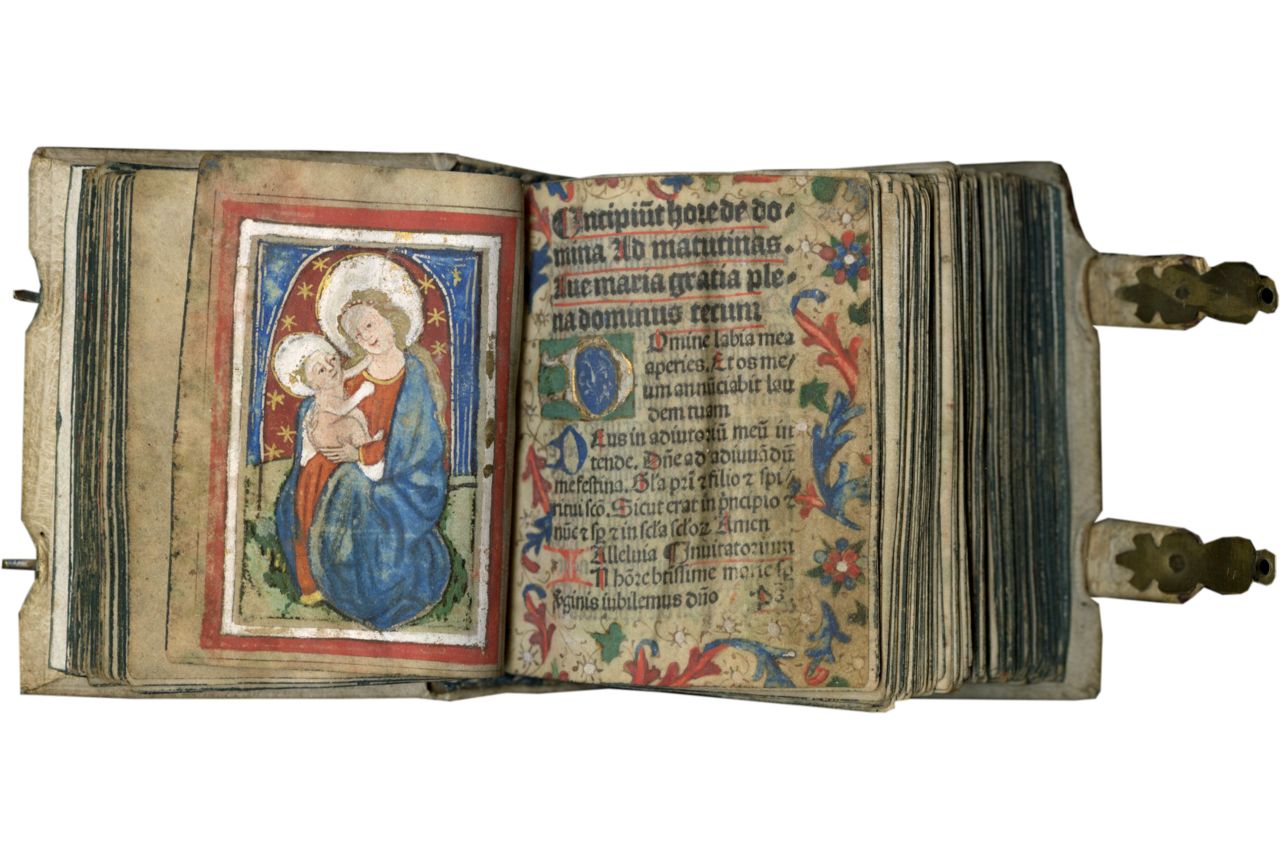 Incipiūt hore de do⸗
mina Ad matutinas.
Aue maria gratia ple⸗
na dominus tecum
Domine labia mea
aperies. Et os me⸗
um annūciabit lau
dem tuam
Deus in adiutoriū meū in
tende. Dn̄e ad adiuuādū
me festina. Gl̄a pr̄i ⁊ filio ⁊ spi⸗
ritui sc̄o. Sicut erat in p̄ncipio ⁊
nūc ⁊ sp̄ ⁊ in sc̄la sc̄loꝝ Amen
Alleluia Inuitatorium
In hōre btīssime marie
v̄ginis iubilemus dn̄o